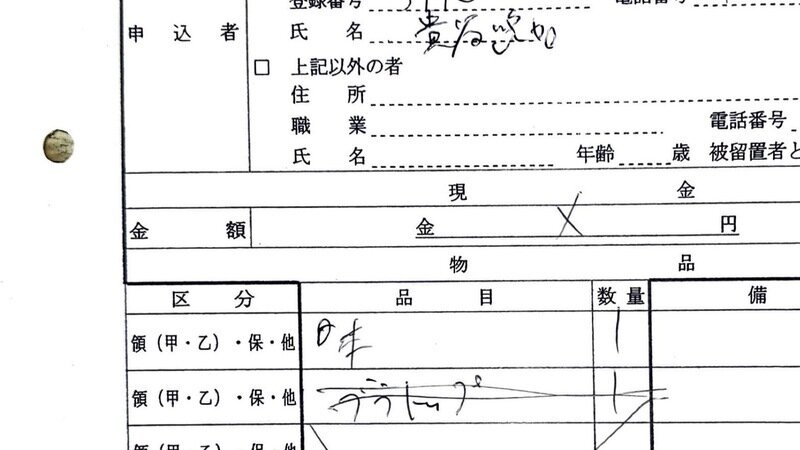 登録番号 電話番号
申込者 氏名
□ 上記以外の者
住所
職業 電話番号
氏名 年齢 歳 被留置者と
現金
金額 金 円
物品
区分 品目 数量 備
領（甲・乙）・保・他 1
領（甲・乙）・保・他 1
領（甲・乙）・保・他